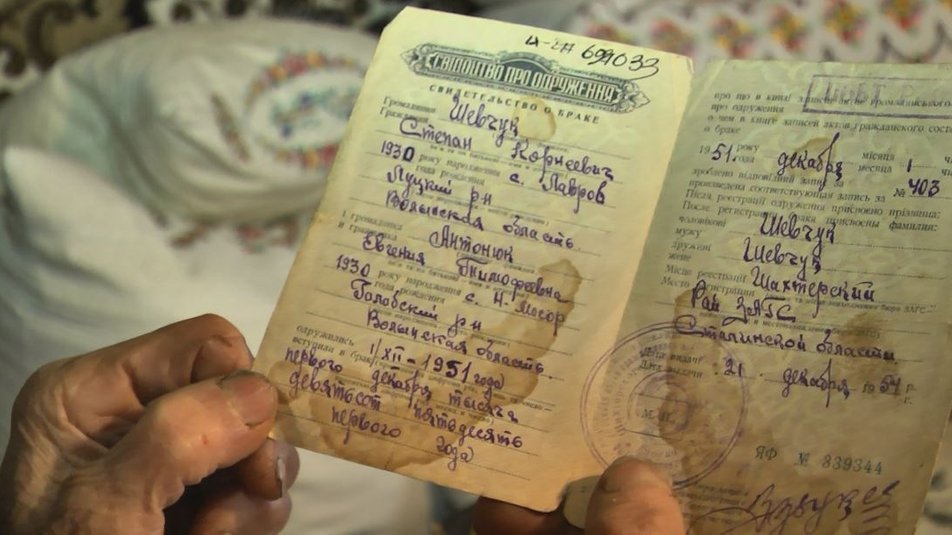 IX-2А 694033
СВІДОЦТВО ПРО ОДРУЖЕННЯ
СВИДЕТЕЛЬСТВО О БРАКЕ
Громадянин
Гражданин
Шевчук
Степан Корнеевич
1930 року народження
года рождения с. Лавров
Луцкий р-н
Волынская область
і громадянка
и гражданка
Антонюк
Евгения Тимофеевна
1930 року народження
года рождения с. Н. Мосор
Голобский р-н
Волынская область
одружились
вступили в брак 1/XII-1951 года)
первого декабря тысяча
девятсот пятьдесять
первого года
про що в книзі записів актів громадянського
про одруження
о чем в книге записей актов гражданского сост
о браке
1951 року
года декабря місяця 1
месяца
зроблено відповідний запис за
произведена соответствующая запись за № 403
Після реєстрації одруження присвоєно прізвища:
После регистрации брака присвоены фамилии:
чоловікові
мужу Шевчук
дружині
жене Шевчук
Місце реєстрації Шахтерский
Место регистрации
Рай ЗАГС
Сталинской области
Дата видачі
Дата выдачи 21 декабря 1954 г.
М. П.
ЯФ № 839344